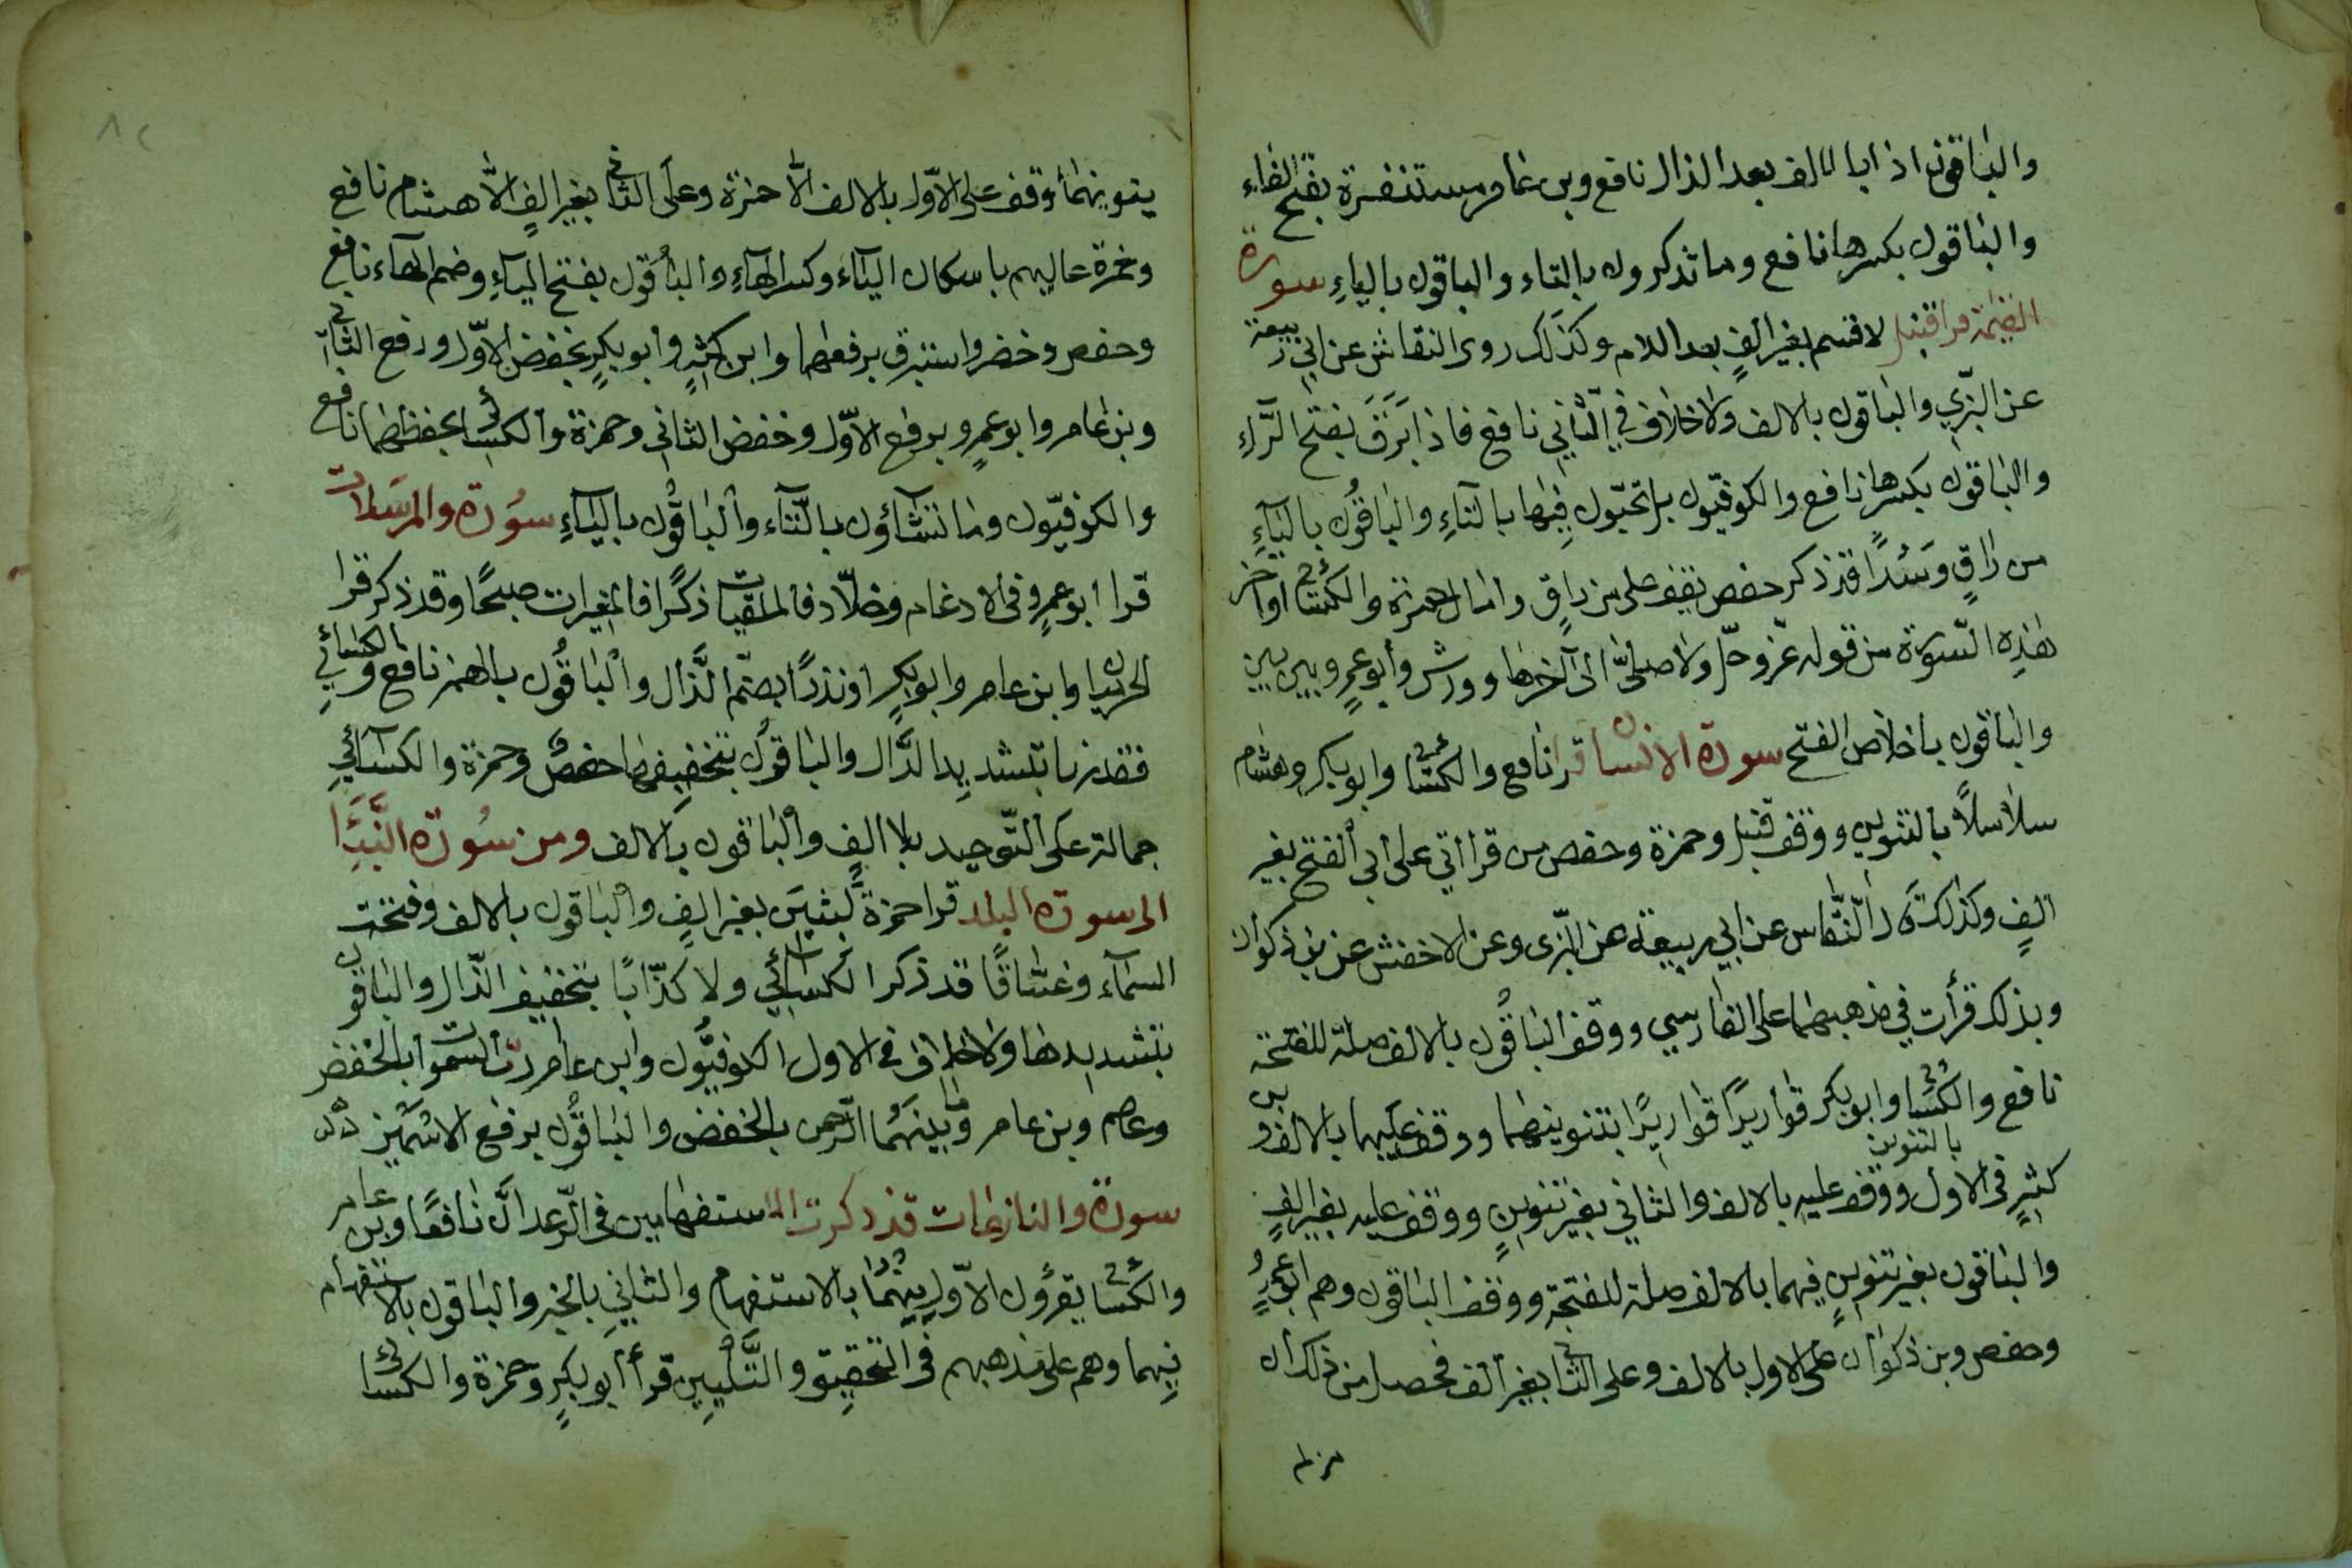 والباقون اذا بالالف بعد الذال نافع وبن عامر مستنفرة بفتح الفاء
والباقون بكسرها نافع وما تذكرون بالتاء والباقون بالياءِ سورة
القيٰمة قرا قنبل لاقسم بغير الفٍ بعد اللام وكذلك روى النقاش عن ابي ربيعة
عن البزّي والباقون بالالف ولا خلاف في الثّاني نافع فاذا بَرَقَ بفتح الرّاءِ
والباقون بكسرها نافع والكوفيّون بل تحبّون فيها بالتاءِ والباقُون بالياءِ
من راقٍ وسُدًا قد ذكر حفص يقف على من راقٍ وامال حمزة والكسائي اواخر
هٰذِه السّورة من قوله عزّ وجلّ ولا صلىّٰ الى آخرها وورش وأبو عمرٍو بين بين
والباقون باخلاص الفتح سورة الانسان قرا نافع والكسائي وابو بكر وهشام
سلاسلاً بالتنوين ووقف قنبل وحمزة وحفص من قراأتي على أبي الفتح بغير
الفٍ وكذلك قال النّقاس عن ابي ربيعة عن البزّى وعن الاخفش عن بن ذكوان
وبذلك قرأت في مذهبهما على الفارسي ووقف الباقُون بالالف صلة للفتحة
نافع والكسائي وابو بكر قواريرًا قواريرًا بتنوينهما ووقف عليهما بالالف وبن
كثيرٍ في الاول بالتنوين ووقف عليه بالالف والثاني بغير تنوينٍ ووقف عليه بغير الفٍ
والباقون بغير تنوينٍ فيهما بالالف صلة للفتحة ووقف الباقون وهم ابو عمرٍو
وحفص وبن ذكوان على الاول بالالف وعلى الثاني بغير ألف فحصل من ذلك ان
من لم
٨٢
ينونهما وقف على الاوّل بالالف الّا حمزة وعلى الثاني بغير الفٍ الّا هشام نافع
وحمزة عاليهم باسكان الياءَ وكسر الهاءِ والباقُون بفتح الياءِ وضم الهاء نافع
وحفص وخضر واستبرق برفعهما وابن كثيرٍ وأبو بكرٍ بخفض الاوّل ورفع الثاني
وبن عامر وابو عمرٍو برفع الاوّل وخفض الثاني وحمزة والكسائي بخفظهما نافع
والكوفيّون وما تشآؤن بالتّاء والباقُون بالياءِ سُورة والمرسَلات
قرا ابو عمرٍو في الادغام وخلّاد فالملقيات ذكرًا فالمغيرات صبحًا وقد ذكر قرا
الحرميان وابن عامر وابو بكرٍ اونذرًا بضمّ الذّال والباقُون بالهمز نافع والكسائي
فقدرنا بتشديد الدَّال والباقُون بتخفيفها حفصٌ وحمزة والكسآئيِ
جمالة على التّوحيد بلا الفٍ والباقون بالالف ومن سُورة النّبَإِ
الى سورة البلد قرا حمزة لَبثينَ بغير الفٍ والباقون بالالف وفتحت
السّماء وغسّاقًا قد ذكر الكسآئي ولا كذّابًا بتخفيف الذّال والباقون
بتشديدها ولا خلاف في الاول الكوفيُّون وابن عامر ربّ السّموات بالخفض
وعاصم وبن عامر وما بينهُما الرّحمن بالخفض والباقُون برفع الاسْمَيْن
سورة والنازعات قد ذكرت الاستفهامين في الرّعد انّ نافعًا وبن عامر
والكسائي يقرؤن الاوّل منهُمَا بالاستفهام والثاني بالخبر والباقون بالاستفهام
فيهما وهم على مذهبهم في التحقيق والتَّلْيِين قرأ أبو بكرٍ وحمزة والكسائي